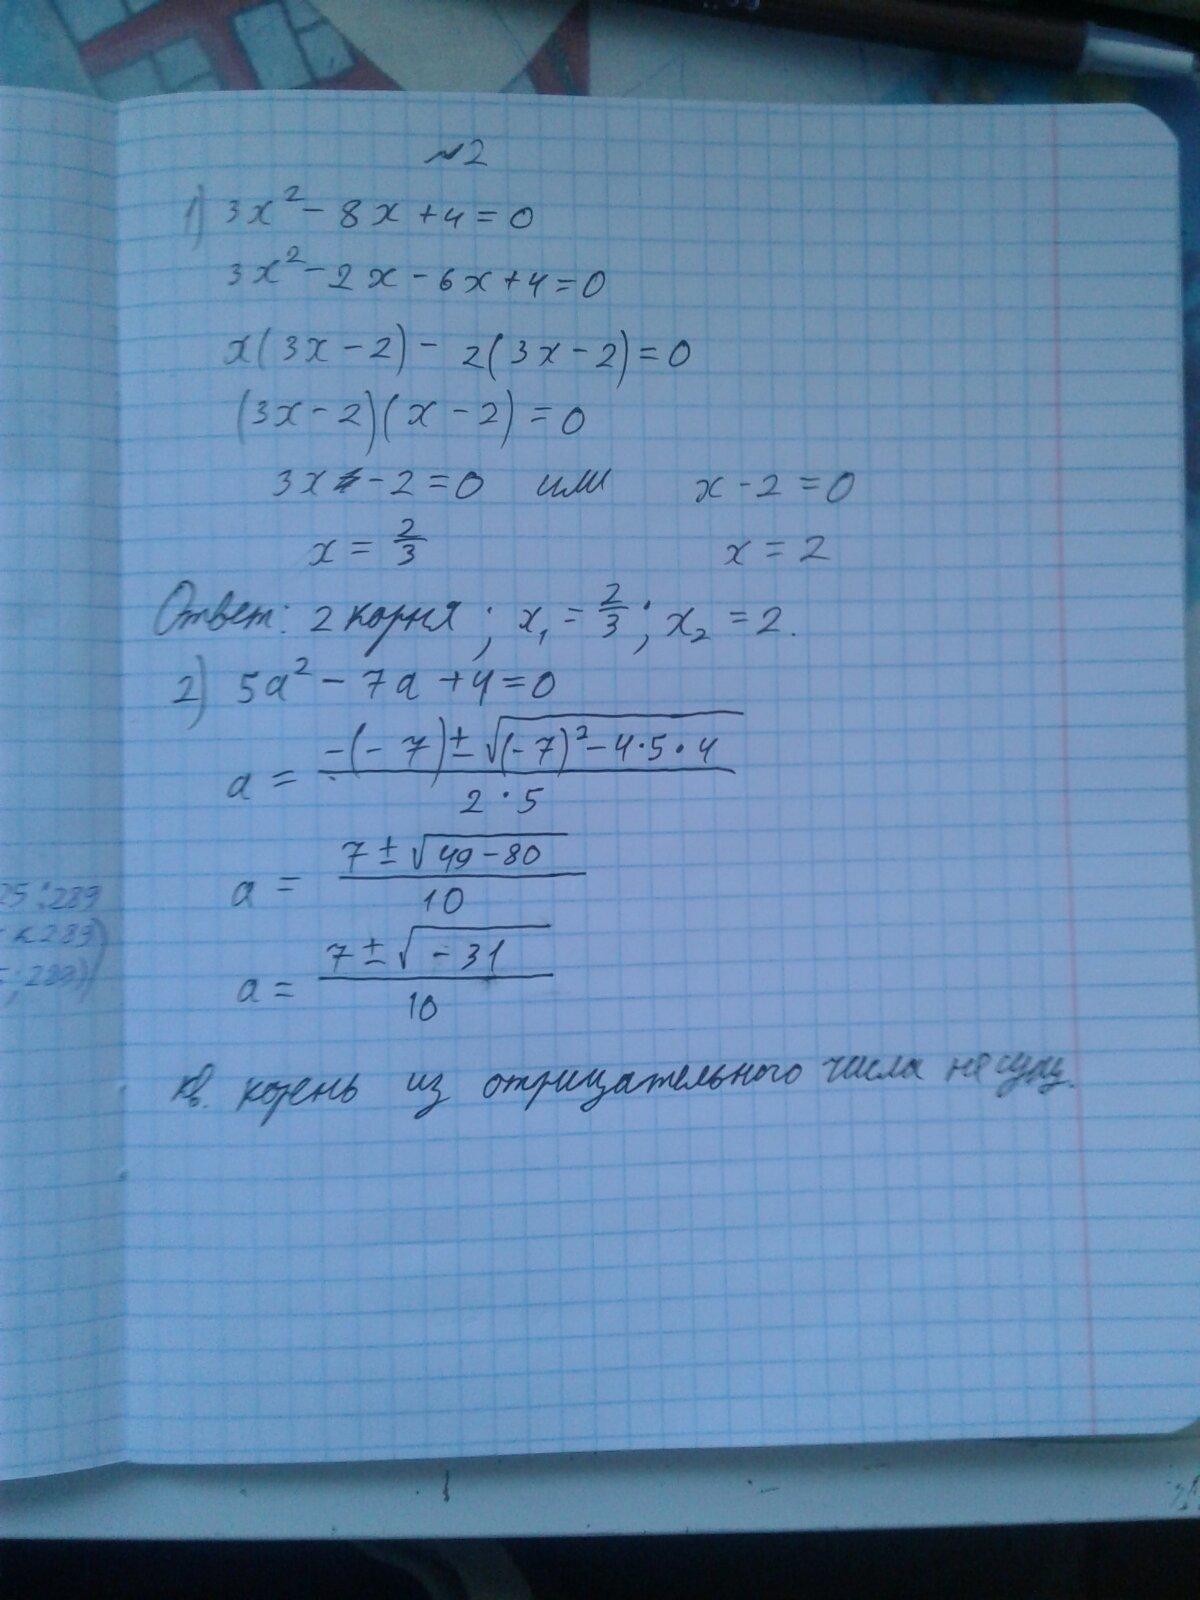 №2
1) 3x² - 8x + 4 = 0
3x² - 2x - 6x + 4 = 0
x(3x - 2) - 2(3x - 2) = 0
(3x - 2)(x - 2) = 0
3x - 2 = 0 или x - 2 = 0
x = 2/3 x = 2
Ответ: 2 корня; x₁ = 2/3; x₂ = 2.
2) 5a² - 7a + 4 = 0
a = (-(-7) ± √((-7)² - 4·5·4)) / (2·5)
a = (7 ± √(49 - 80)) / 10
a = (7 ± √(-31)) / 10
кв. корень из отрицательного числа не сущ.
25:289
289)
289)